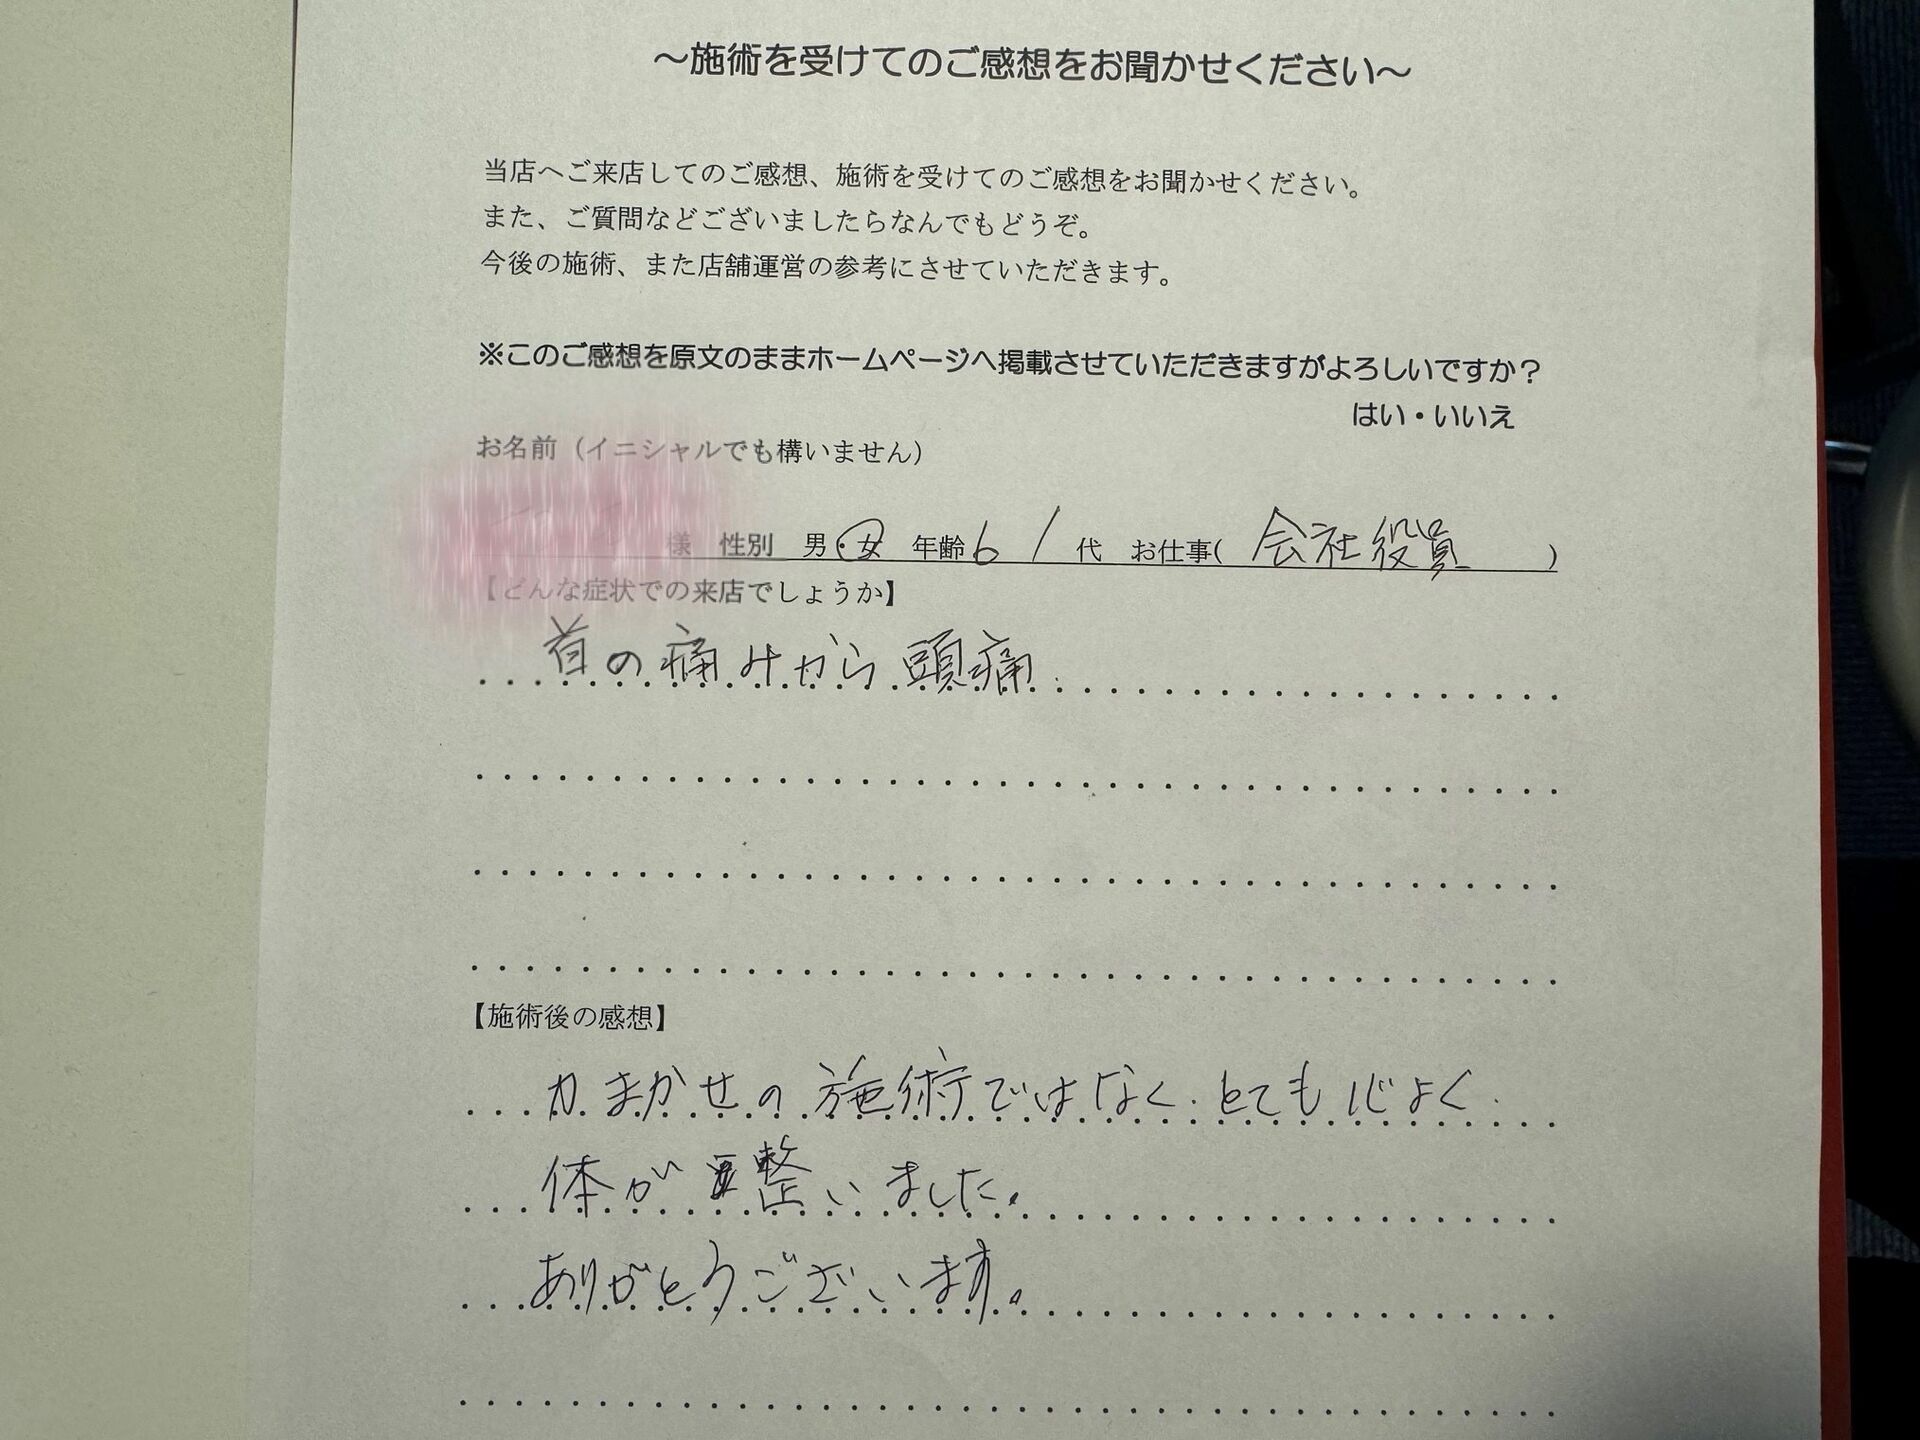 ～施術を受けてのご感想をお聞かせください～
当店へご来店してのご感想、施術を受けてのご感想をお聞かせください。
また、ご質問などございましたらなんでもどうぞ。
今後の施術、また店舗運営の参考にさせていただきます。
※このご感想を原文のままホームページへ掲載させていただきますがよろしいですか？
はい・いいえ
お名前（イニシャルでも構いません）
様 性別 男・女 年齢 61代 お仕事( 会社役員 )
【どんな症状での来店でしょうか】
首の痛みから頭痛
【施術後の感想】
力まかせの施術ではなく とても心よく
体が整いました。
ありがとうございます。